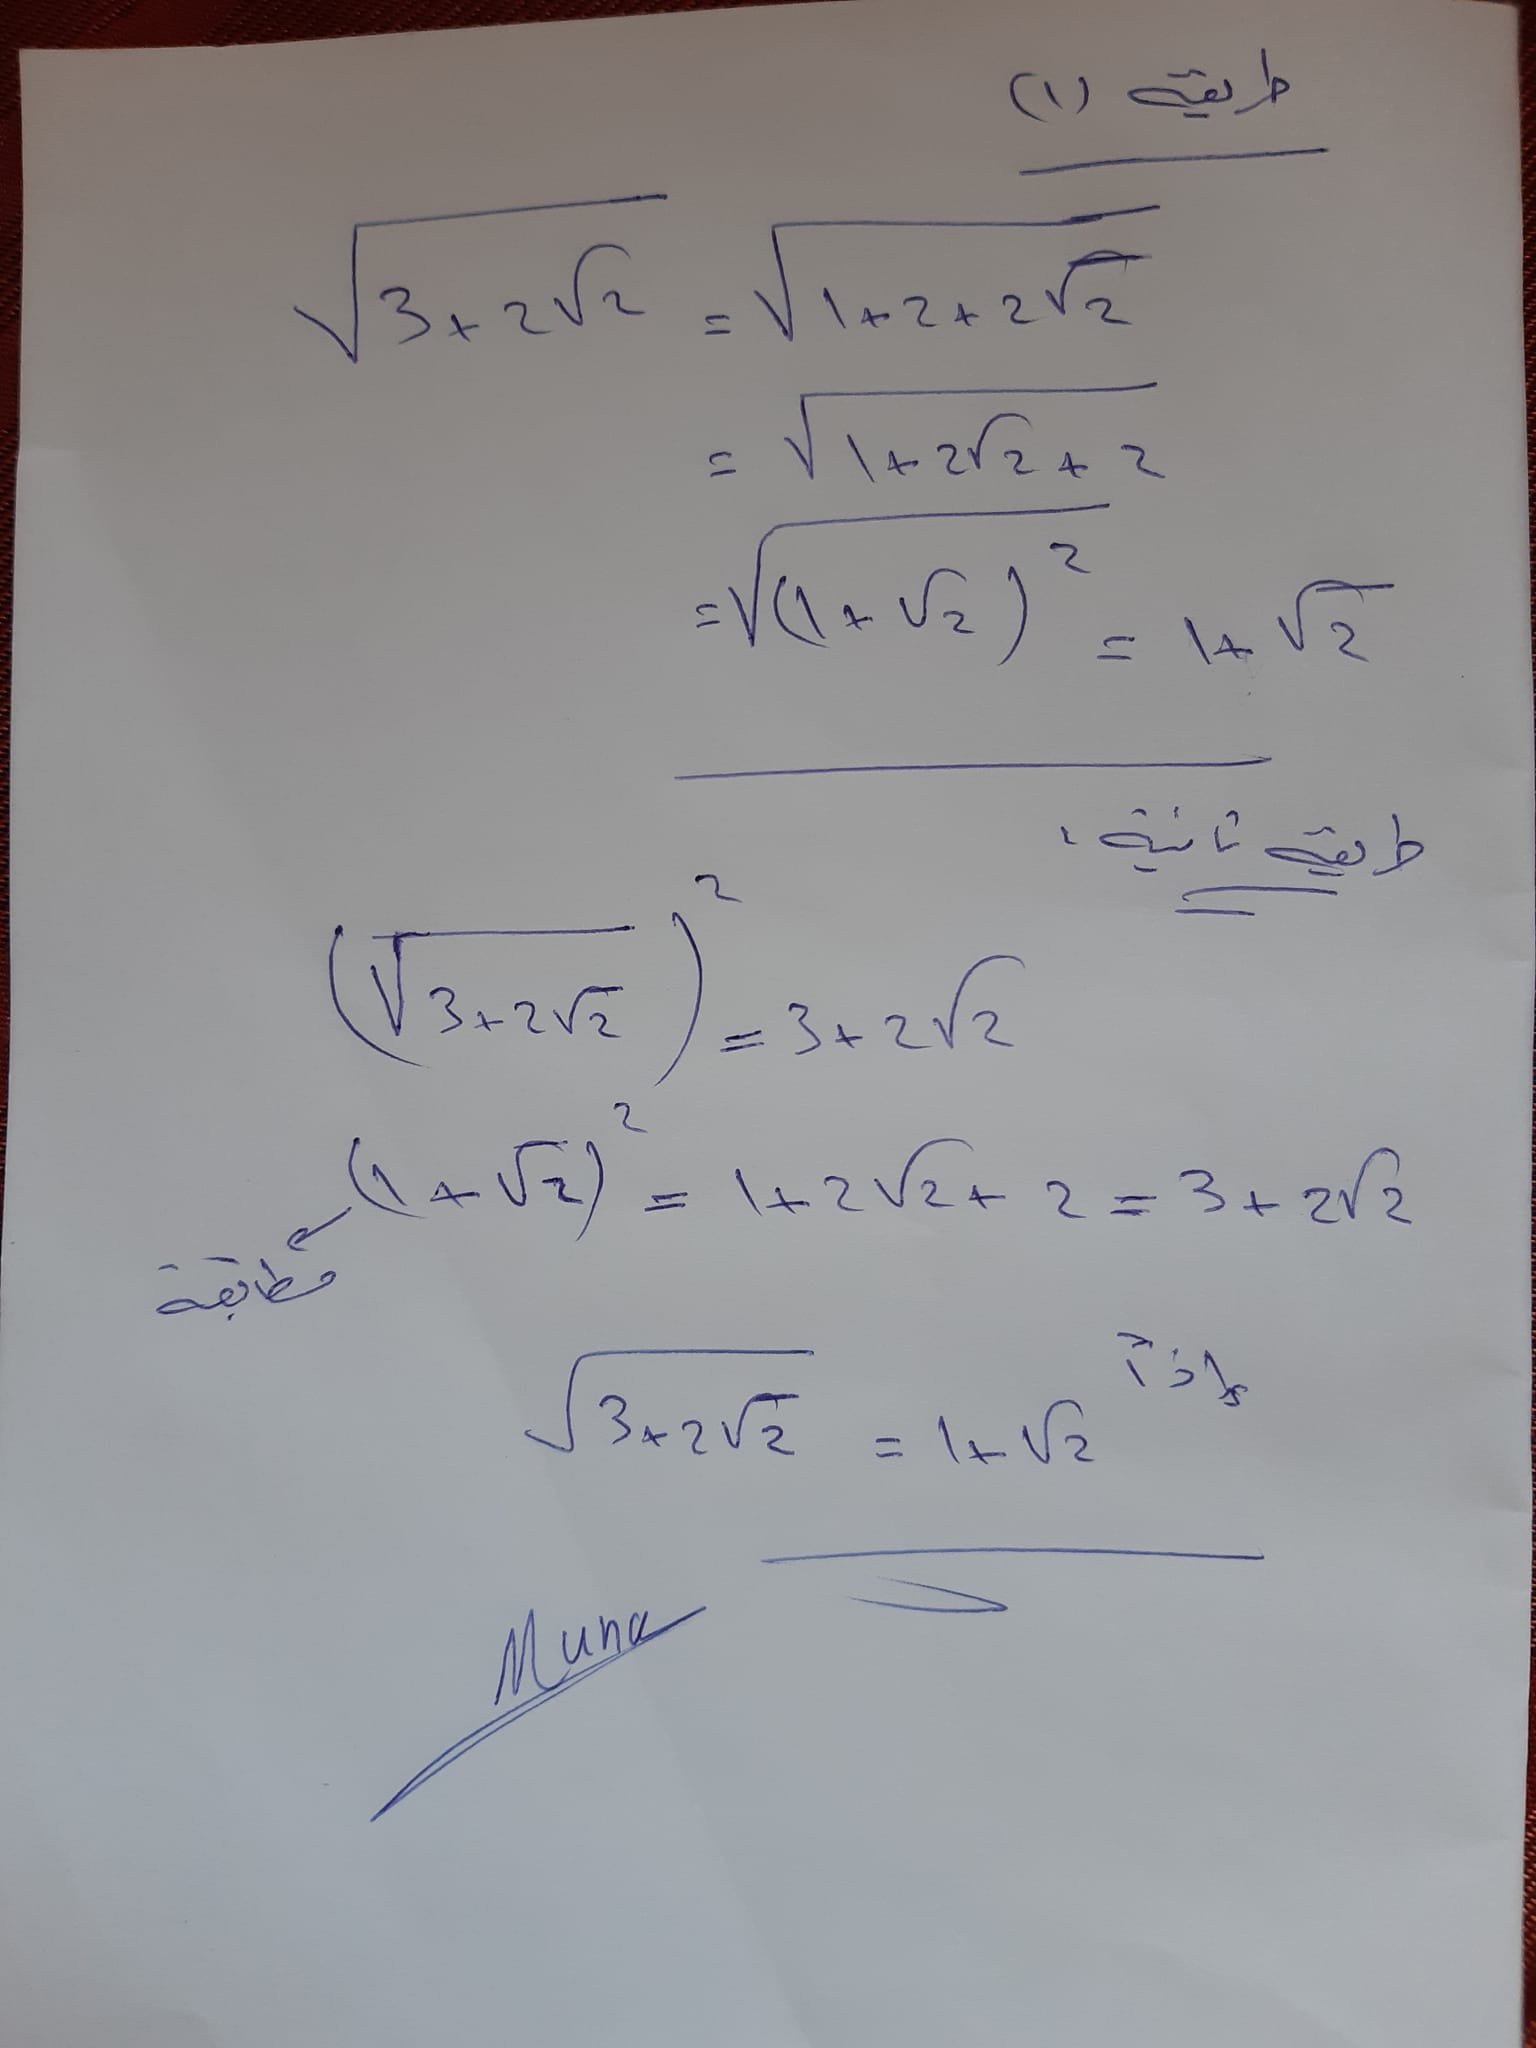 طريقة (١)
√(3+2√2) = √(1+2+2√2)
= √(1+2√2+2)
= √((1+√2)²) = 1+√2
طريقة ثانية:
(√(3+2√2))² = 3+2√2
(1+√2)² = 1+2√2+2 = 3+2√2
مطابقة
إذاً
√(3+2√2) = 1+√2
Muna